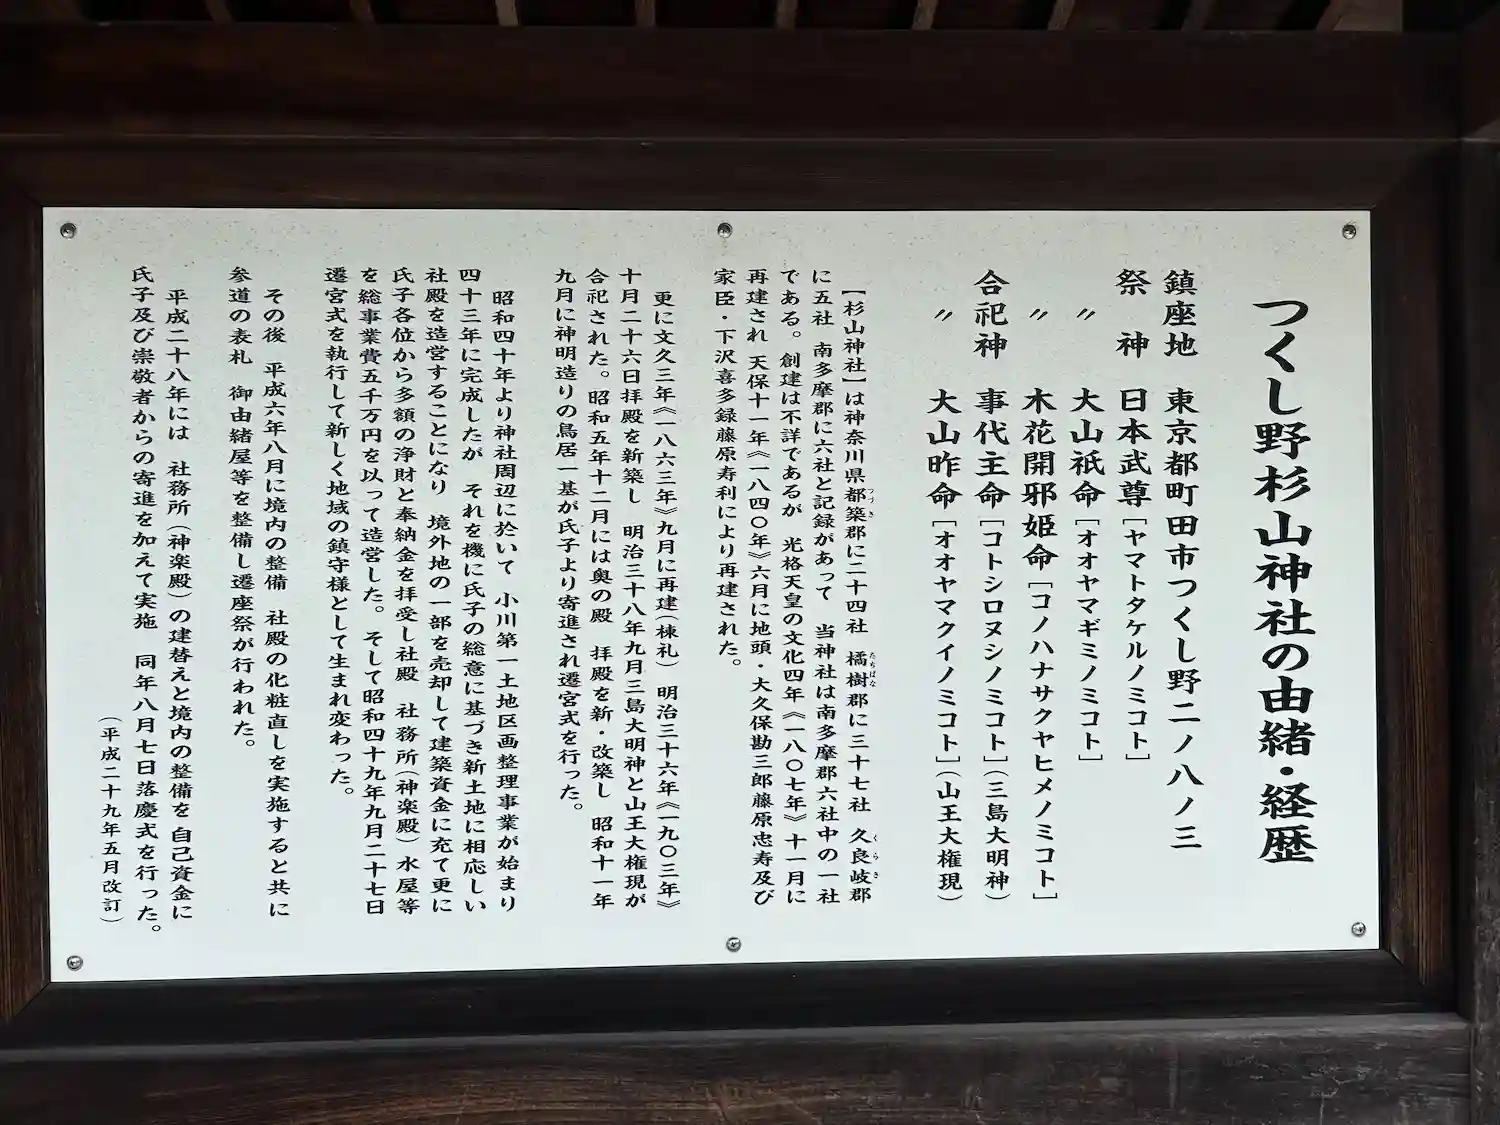 つくし野杉山神社の由緒・経歴
鎮座地 東京都町田市つくし野二ノ八ノ三
祭神 日本武尊［ヤマトタケルノミコト］
〃 大山祇命［オオヤマギミノミコト］
〃 木花開邪姫命［コノハナサクヤヒメノミコト］
合祀神 事代主命［コトシロヌシノミコト］（三島大明神）
〃 大山昨命［オオヤマクイノミコト］（山王大権現）
【杉山神社】は神奈川県都築郡に二十四社 橘樹郡に三十七社 久良岐郡
つづき たちばな くらき
に五社 南多摩郡に六社と記録があって 当神社は南多摩郡六社中の一社
である。創建は不詳であるが 光格天皇の文化四年《一八〇七年》十一月に
再建され 天保十一年《一八四〇年》六月に地頭・大久保勘三郎藤原忠寿及び
家臣・下沢喜多録藤原寿利により再建された。
更に文久三年《一八六三年》九月に再建（棟礼）明治三十六年《一九〇三年》
十月二十六日拝殿を新築し 明治三十八年九月三島大明神と山王大権現が
合祀された。昭和五年十二月には奥の殿 拝殿を新・改築し 昭和十一年
九月に神明造りの鳥居一基が氏子より寄進され遷宮式を行った。
昭和四十年より神社周辺に於いて 小川第一土地区画整理事業が始まり
四十三年に完成したが それを機に氏子の総意に基づき新土地に相応しい
社殿を造営することになり 境外地の一部を売却して建築資金に充て更に
氏子各位から多額の浄財と奉納金を拝受し社殿 社務所（神楽殿）水屋等
を総事業費五千万円を以って造営した。そして昭和四十九年九月二十七日
遷宮式を執行して新しく地域の鎮守様として生まれ変わった。
その後 平成六年八月に境内の整備 社殿の化粧直しを実施すると共に
参道の表札 御由緒屋等を整備し遷座祭が行われた。
平成二十八年には 社務所（神楽殿）の建替えと境内の整備を 自己資金に
氏子及び崇敬者からの寄進を加えて実施 同年八月七日落慶式を行った。
（平成二十九年五月改訂）